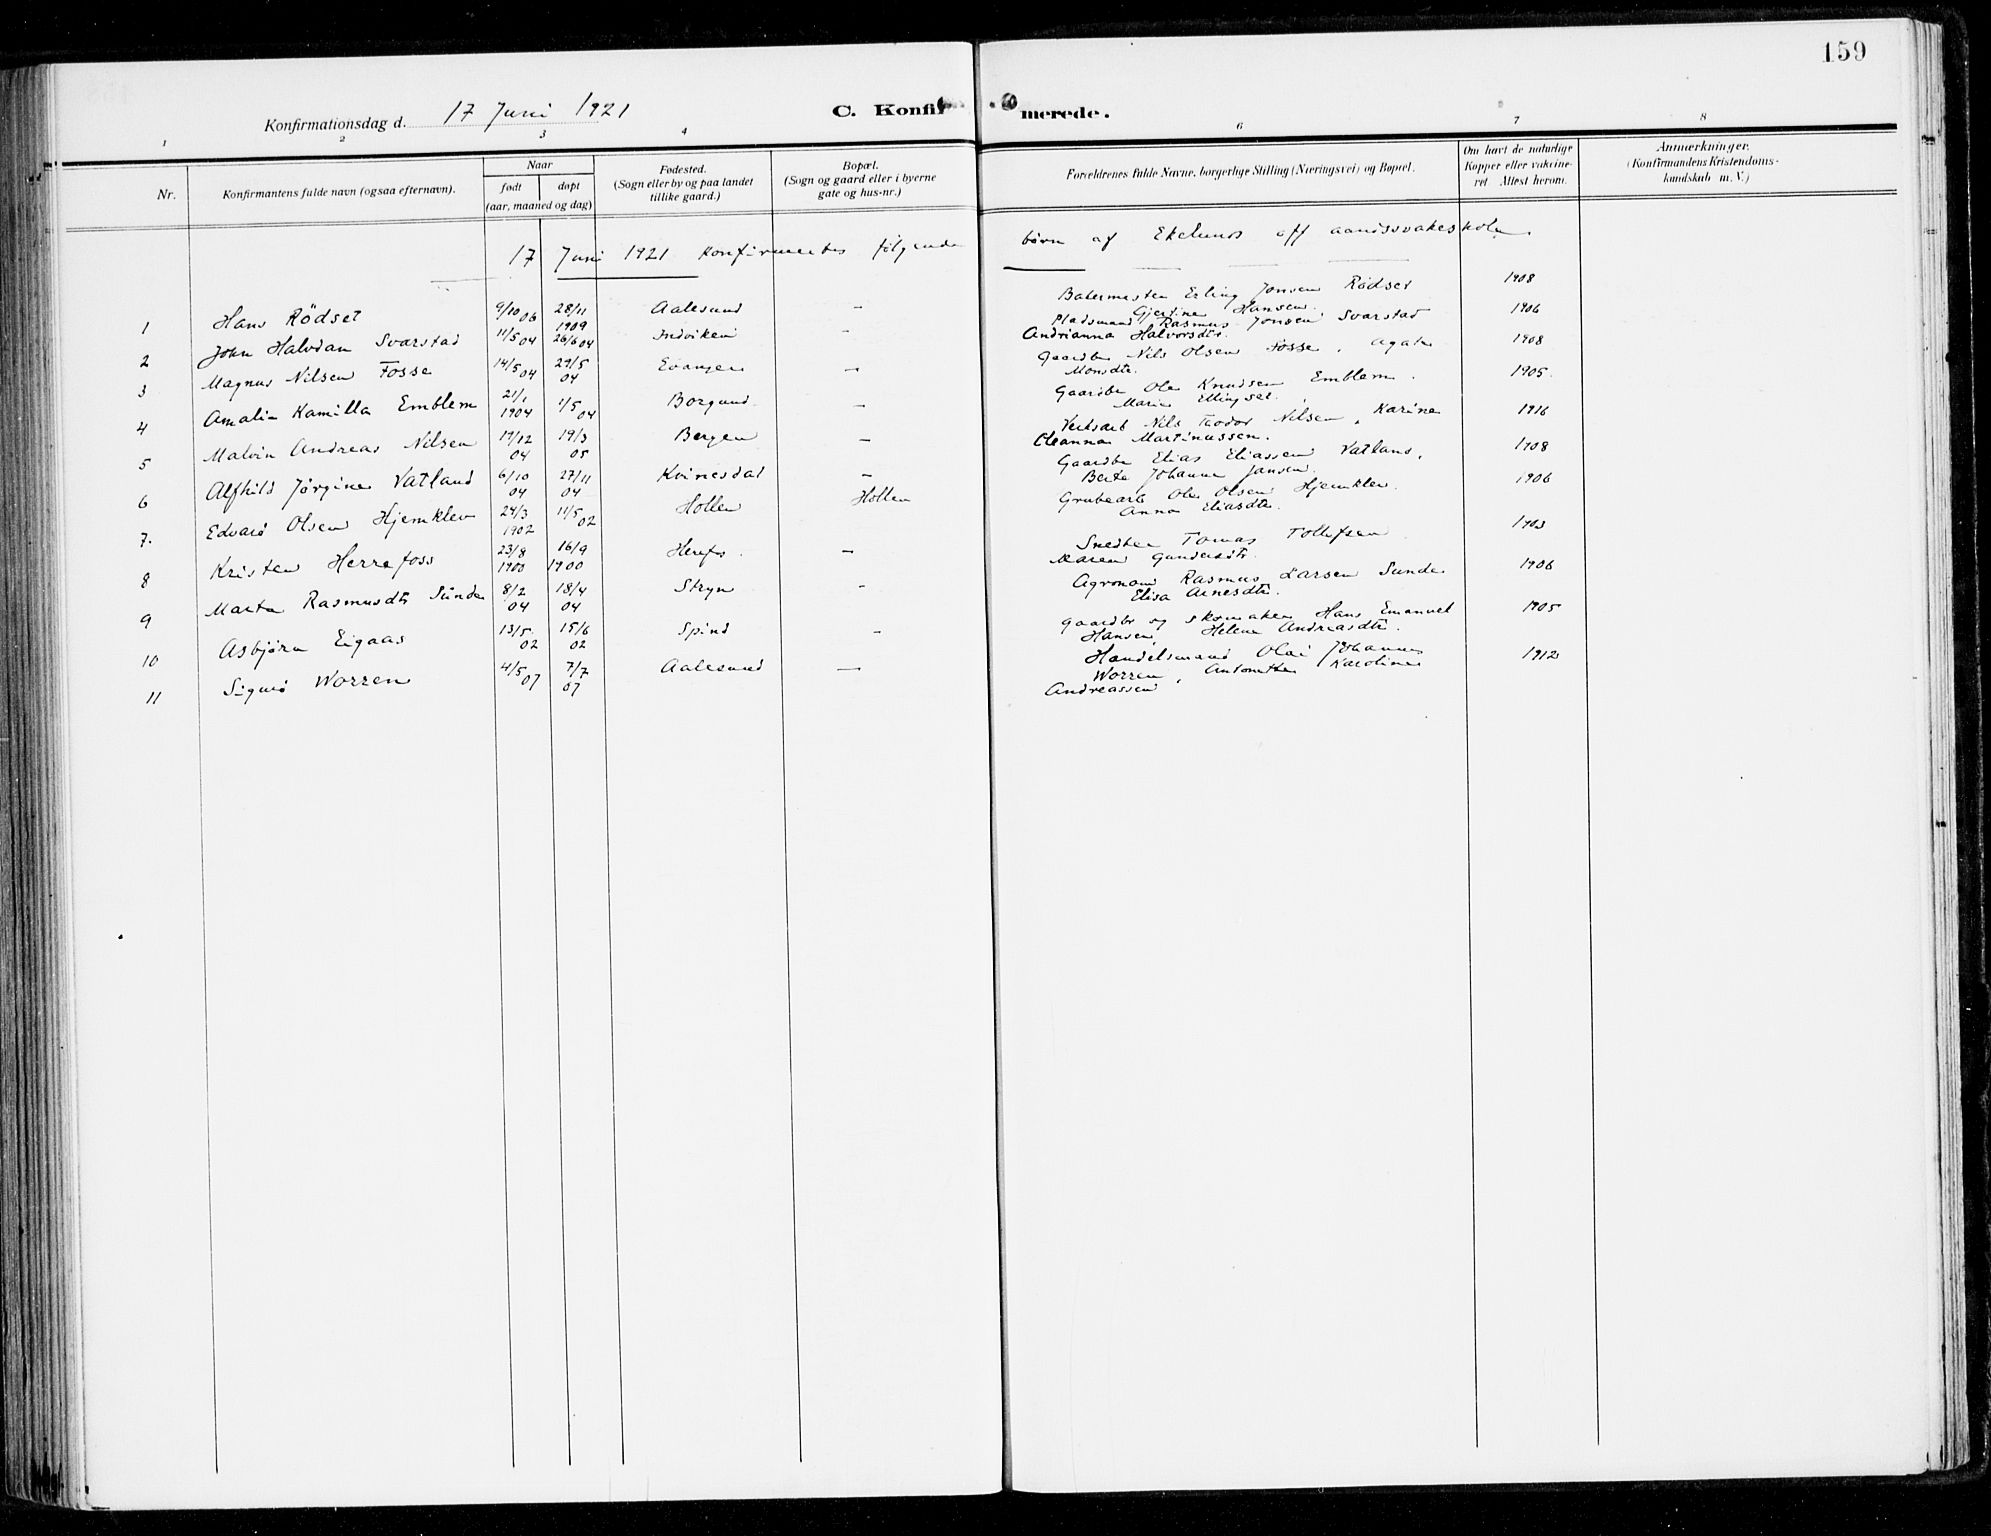 159
Konfirmationsdag d. 17 Juni 1921 C. Konfir merede.
1 2 3 4 6 7 8
Nr. Konfirmantens fulde navn (ogsaa efternavn). Naar født døpt (aar, maaned og dag) Fødested. (Sogn eller by og paa landet tillike gaard.) Bopæl. (Sogn og gaard eller i byerne gate og hus-nr.) Forældrenes fulde Navne, borgerlige Stilling (Næringsvei) og Bopæl. Om havt de naturlige Kopper eller vaccineret. Attest herom. Anmærkninger. (Konfirmandens Kristendomskundskab m. V.)
17 Juni 1921 konfirmertes følgende børn af Ekelunds off aandssvakeskole
1 Hans Rödset 9/10 06 28/11 1909 Aalesund — Erling Jonsen Rödset 1908
Gjertine Hansen.
2 John Halvdan Svarstad 11/5 04 26/6 04 Indviken — Pladsmand Rasmus Jonsen Svarstad 1906
Andrianna Halvorsdtr.
3 Magnus Nilsen Fosse 14/5 04 29/5 04 Evanger — Gaardbr Nils Olsen Fosse, Agate 1908
Monsdtr.
4 Amalie Kamilla Emblem 21/1 1904 1/5 04 Borgund — Gaardbr Ole Knudsen Emblem. 1905.
Marie Ellingset.
5 Malvin Andreas Nilsen 19/12 04 19/3 05 Bergen — Verksarb Nils Teodor Nilsen, Karine 1916
Oleanna Martinussen.
6 Alfhild Jørgine Vatland 6/10 04 27/11 04 Kvinesdal — Gaardbr Elias Eliassen Vatland, 1908
Berte Johanne Jansen.
7. Edvard Olsen Hjemklev 24/3 1902 11/5 02 Hollen Hollen Grubearb Ole Olsen Hjemklev. 1906
Anna Eliasdtr.
8 Kristen Herrefoss 23/8 1900 16/9 1900 Herefos. — Snedker Tomas Tollefsen. 1903
Maren Gundersdtr.
9 Marta Rasmusdtr Sunde 8/2 04 18/4 04 Stryn — Agronom Rasmus Larsen Sunde 1906
Elisa Arnesdtr.
10 Asbjørn Eigaas 13/5 02 15/6 02 Spind — Gaardbr og skomaker Hans Emanuel 1905
Hansen, Helene Andreasdtr.
11 Sigurd Worren 4/5 07 7/7 07 Aalesund — Handelsmand Olai Johannes 1912
Worren, Antonette Karoline
Andreassen